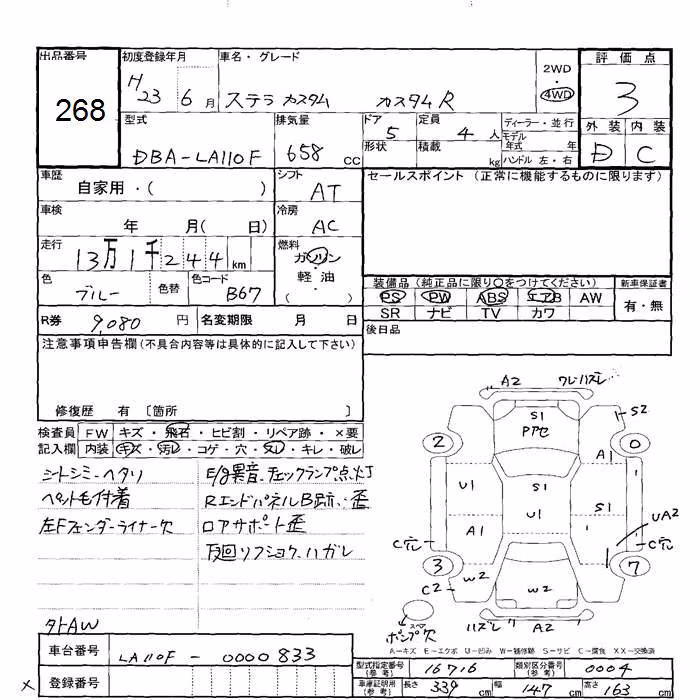 出品番号 初度登録年月 車名・グレード 2WD 4WD 評価点
268
H 23 6月 ステラ カスタム カスタムR 3
型式 排気量 ドア 5 定員 4人 ディーラー・並行 外装 内装
形状 積載 kg モデル年式 年 ハンドル 左・右
DBA-LA110F 658cc D C
車歴 シフト セールスポイント (正常に機能するものに限ります)
自家用・( ) AT
車検 冷房
年 月( 日) AC
走行 燃料
13万1千244km ガソリン・軽油( )
色 色替 色コード 装備品(純正品に限り○をつけてください) 新車保証書
ブルー B67 PS PW ABS エアB AW 有・無
SR ナビ TV カワ
R券 9,080円 名変期限 月 日 後日品
注意事項申告欄(不具合内容等は具体的に記入して下さい)
修復歴 有 〔箇所 〕
検査員 FW キズ・飛石・ヒビ割・リペア跡・×要
記入欄 内装 キズ・汚レ・コゲ・穴・スレ・キレ・破レ
シートシミ・ヘタリ E/g異音.チェックランプ点灯
ペット毛付着 RエンドパネルB跡.歪
左Fフェンダーライナー欠 ロアサポート歪
下回リフショク.ハガレ
外AW
A2 ワレハズレ
S1 PPセ S2
2 0
A1
U1 S1 S1
U1
A1 UA2
C穴 C穴
3 7
C2 W2 W2
スペア ポンプ欠 ハズレ A2
A-キズ E-エクボ U-凹み W-補修跡 S-サビ C-腐食 XX-交換済
車台番号 LA110F-0000833
登録番号
型式指定番号(参考) 16716 類別区分番号(参考) 0004
車庫証明用(参考) 長さ 339cm 幅 147cm 高さ 163cm